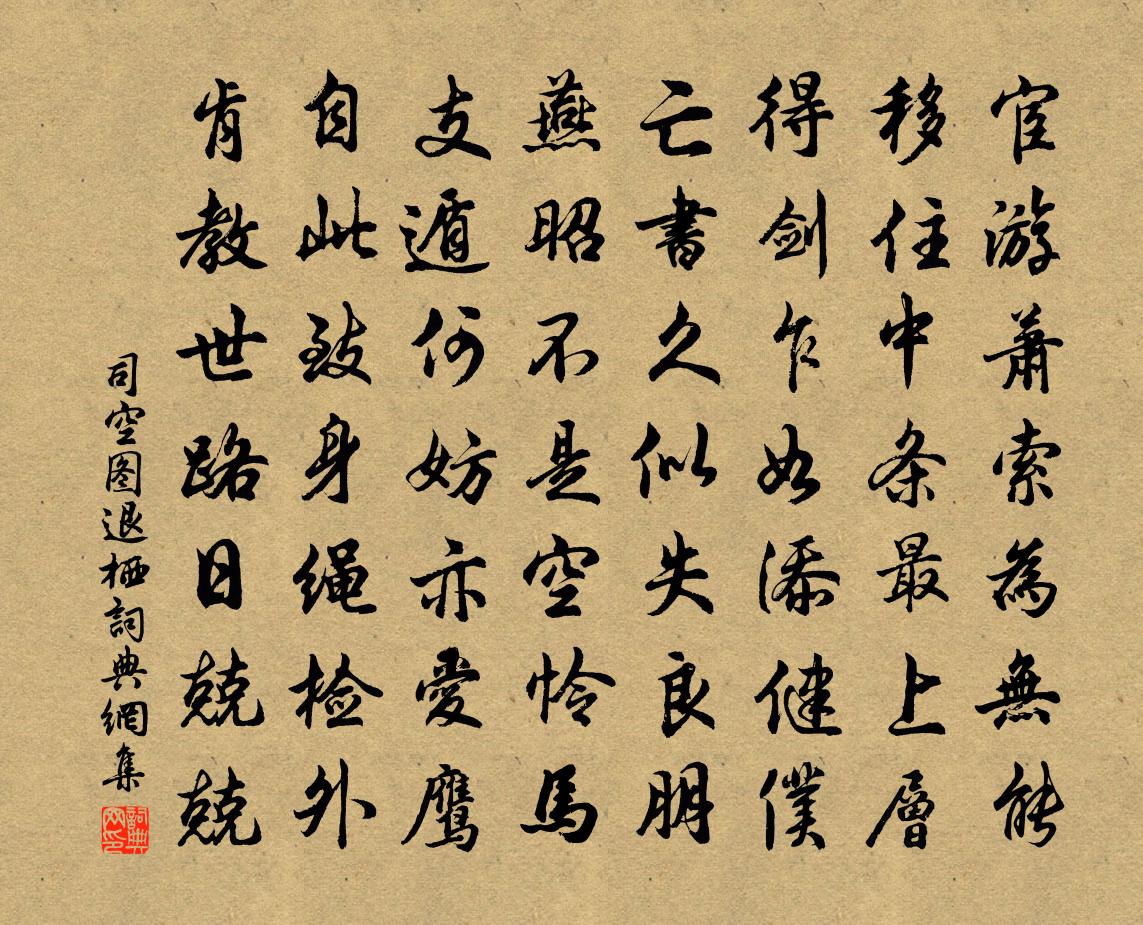 宦游萧索為無能
移住中条最上層
得剑乍如添健僕
亡書久似失良朋
燕昭不是空怜馬
支遁何妨亦愛鹰
自此致身绳检外
肯教世路日兢兢
司空图退栖詞典網集
詞典网印